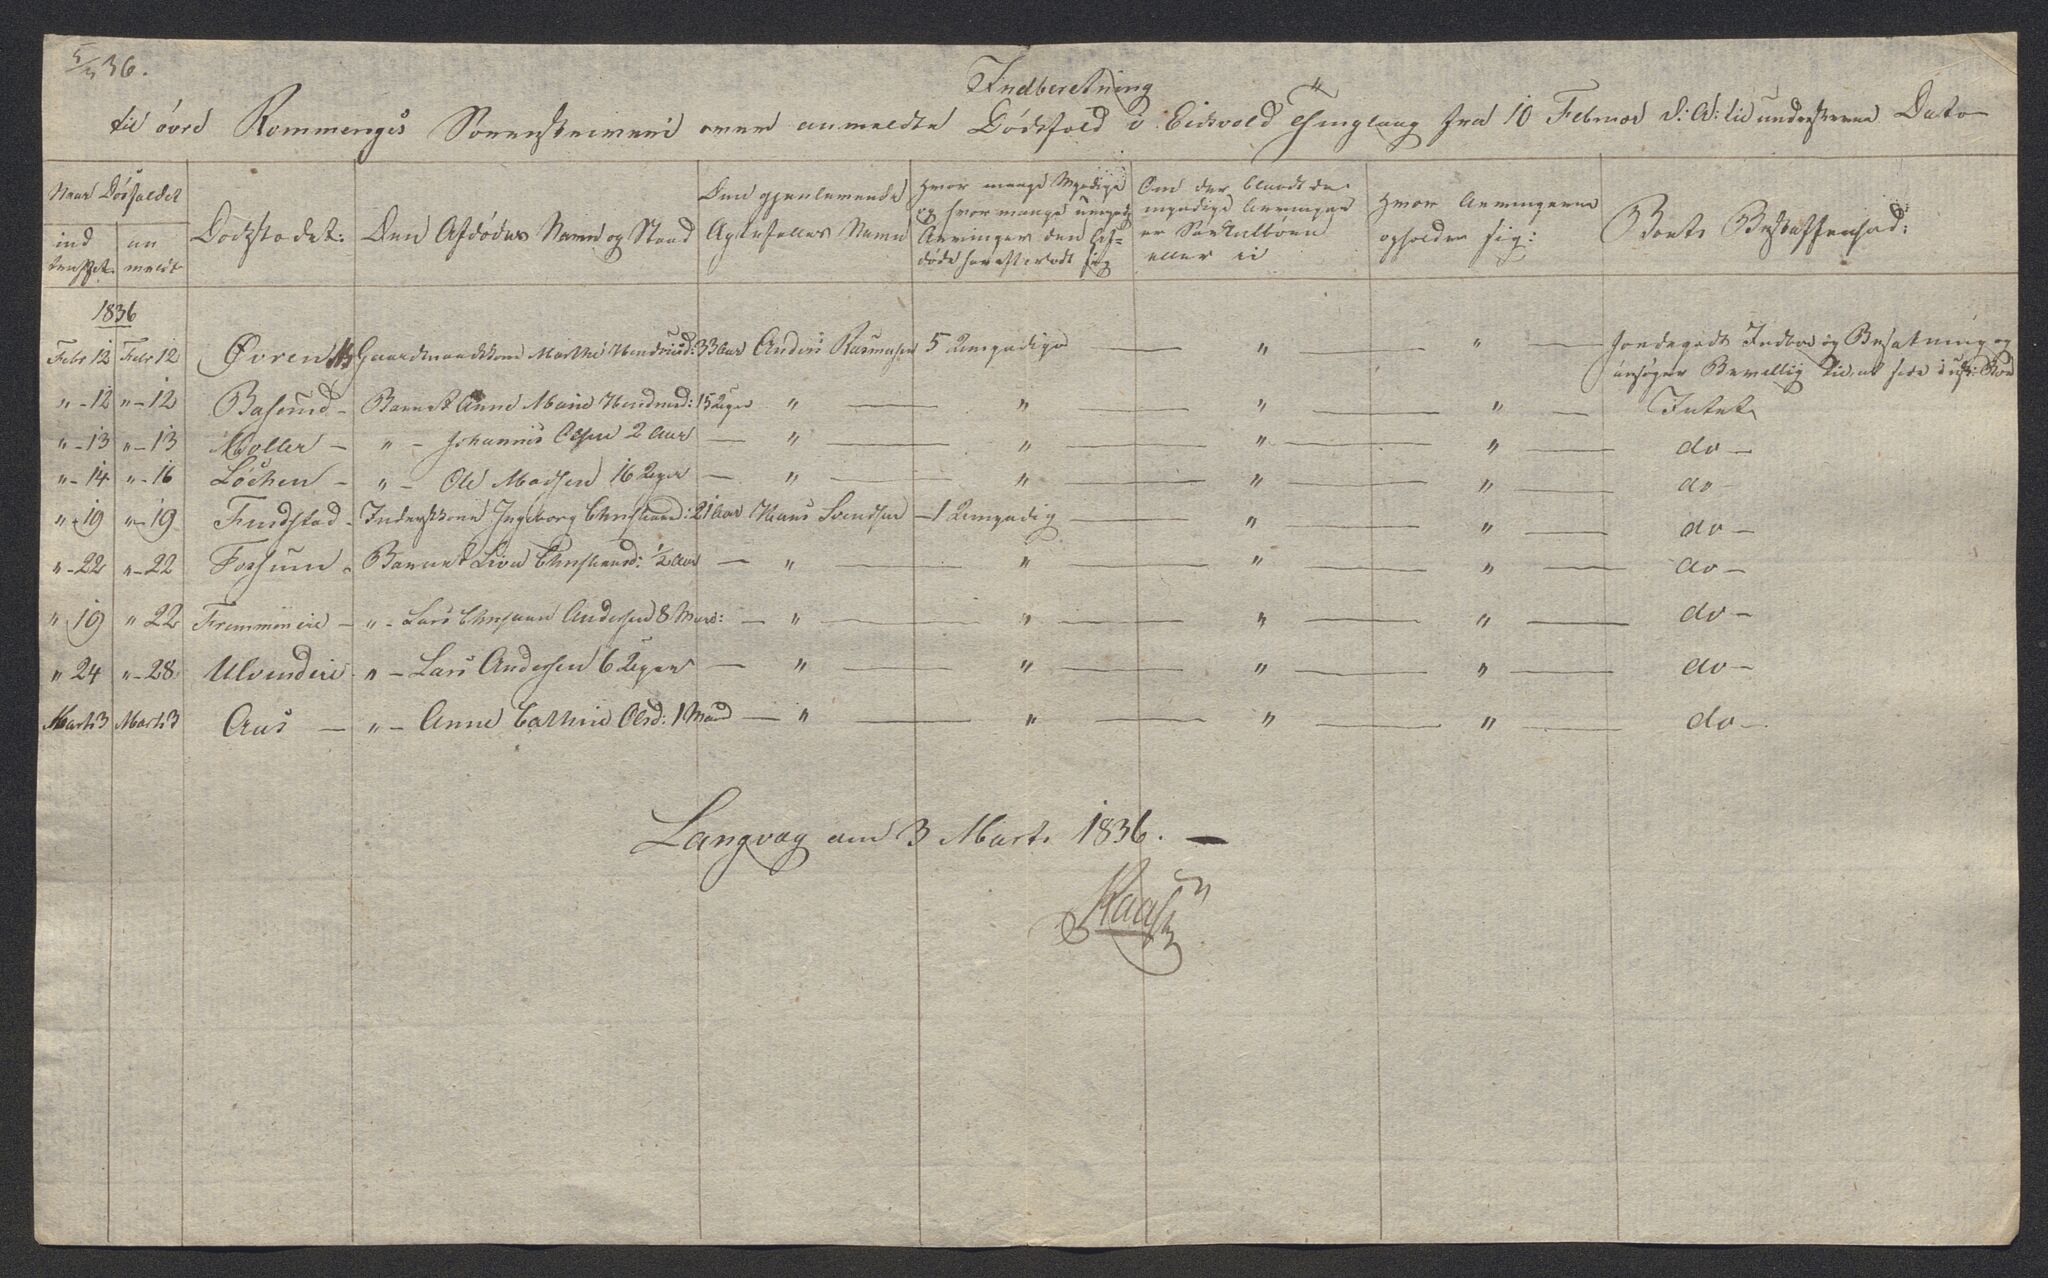 5/3 36.
Indberetning
til övre Rommeriges Sorenskriveri over anmeldte Dödsfald i Eidsvold Thinglaug fra 10 Februar d: A: til underskrevne Dato
Naar Dösfaldet
ind truffet
an meldt
Dödstædet:
Den Afdödes Navn og Stand
Den gjenlevende Ægtefælles Navn
Hvor mange Myndige og hvor mange umyndige Arvinger den Afdöde har efterladt sig
Om der blandt de myndige Arvinger er Særkulbörn eller ei
Hvor Arvingerne opholder sig:
Boets Beskaffenhed:
1836
Febr 12 Febr 12 Øvren Gaardmandskone Marthe Hendrichsd: 33 Aar Anders Rasmusen 5 Umyndige — " — " — Jordegods Indboe og Besætning og
ansöger Bevilling til at sidde i uskiftet Boe
" - 12 " - 12 Baserud - Barnet Anne Marie Hendrichsd: 15 Uger " — " — " — " — Intet
" - 13 " - 13 Moller - " - Johannis Olsen 2 Aar — " — " — " — " — do -
" - 14 " - 16 Löchen - " - Ole Madsen 16 Uger — " — " — " — " — do -
" - 19 " - 19 Findstad - Inderstkone Ingeborg Christiansd: 21 Aar Hans Svendsen - 1 Umyndig — " — " — do -
" - 22 " - 22 Fossum - Barnet Live Christiansd: 1/2 Aar — " — " — " — " — do -
" 19 " 22 Fremmineie - " - Lars Christian Andersen 8 Maan: — " — " — " — " — do -
" 24 " - 28 Ulvindeie - " - Lars Andersen 6 Uger — " — " — " — " — do -
Marts 3 Marts 3 Aas — " - Anne Cathrine Olsd: 1 Maand — " — " — " — " — do -
Langvag den 3 Marts 1836. —
Raasch